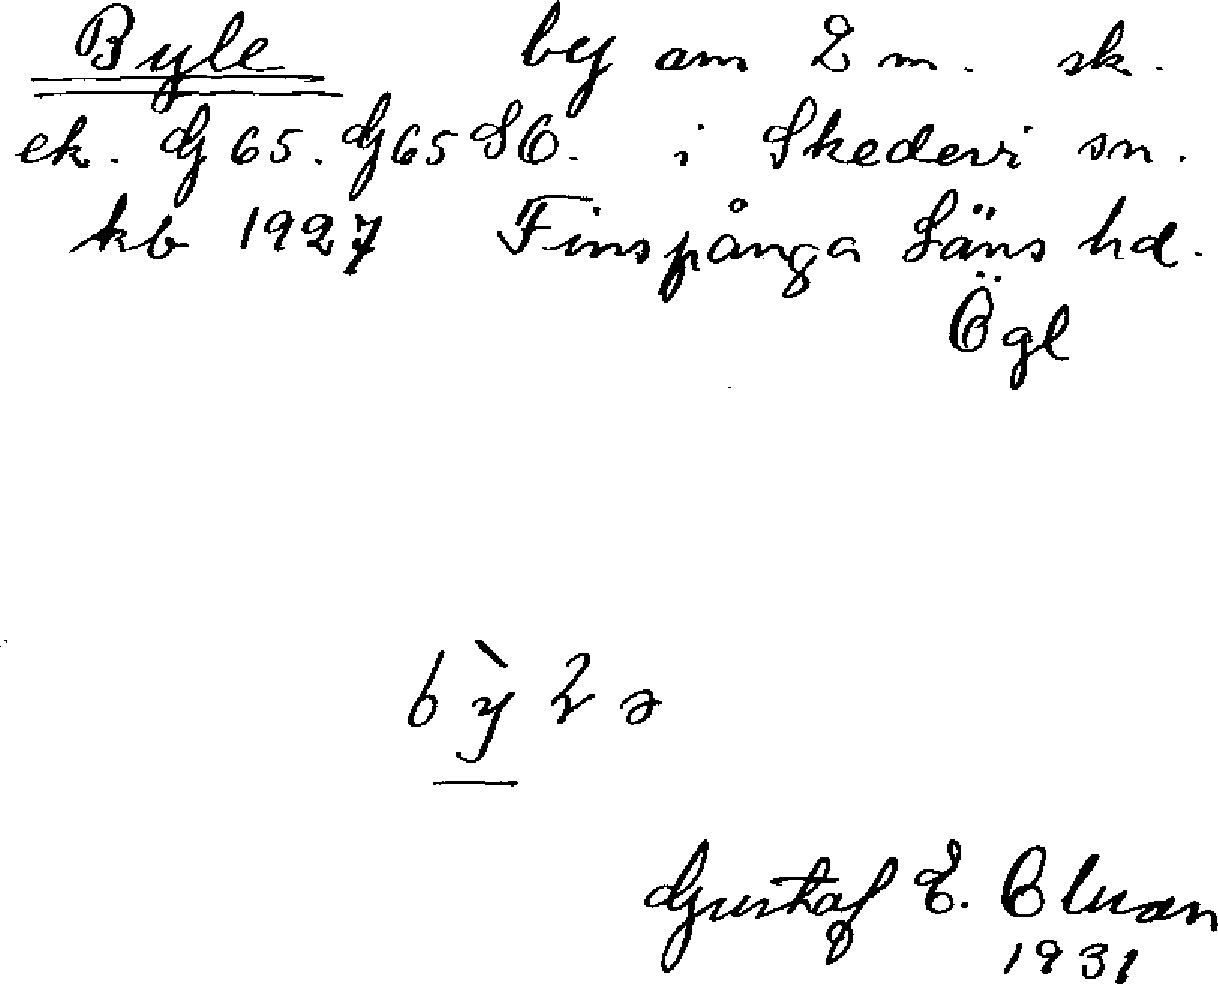 Byle by om 2 m. sk.
ek. G 65. G65 SO. i Skedevi sn.
kb 1927 Finspånga Läns hd.
Ögl
bỳlə
Gustaf E.
1931